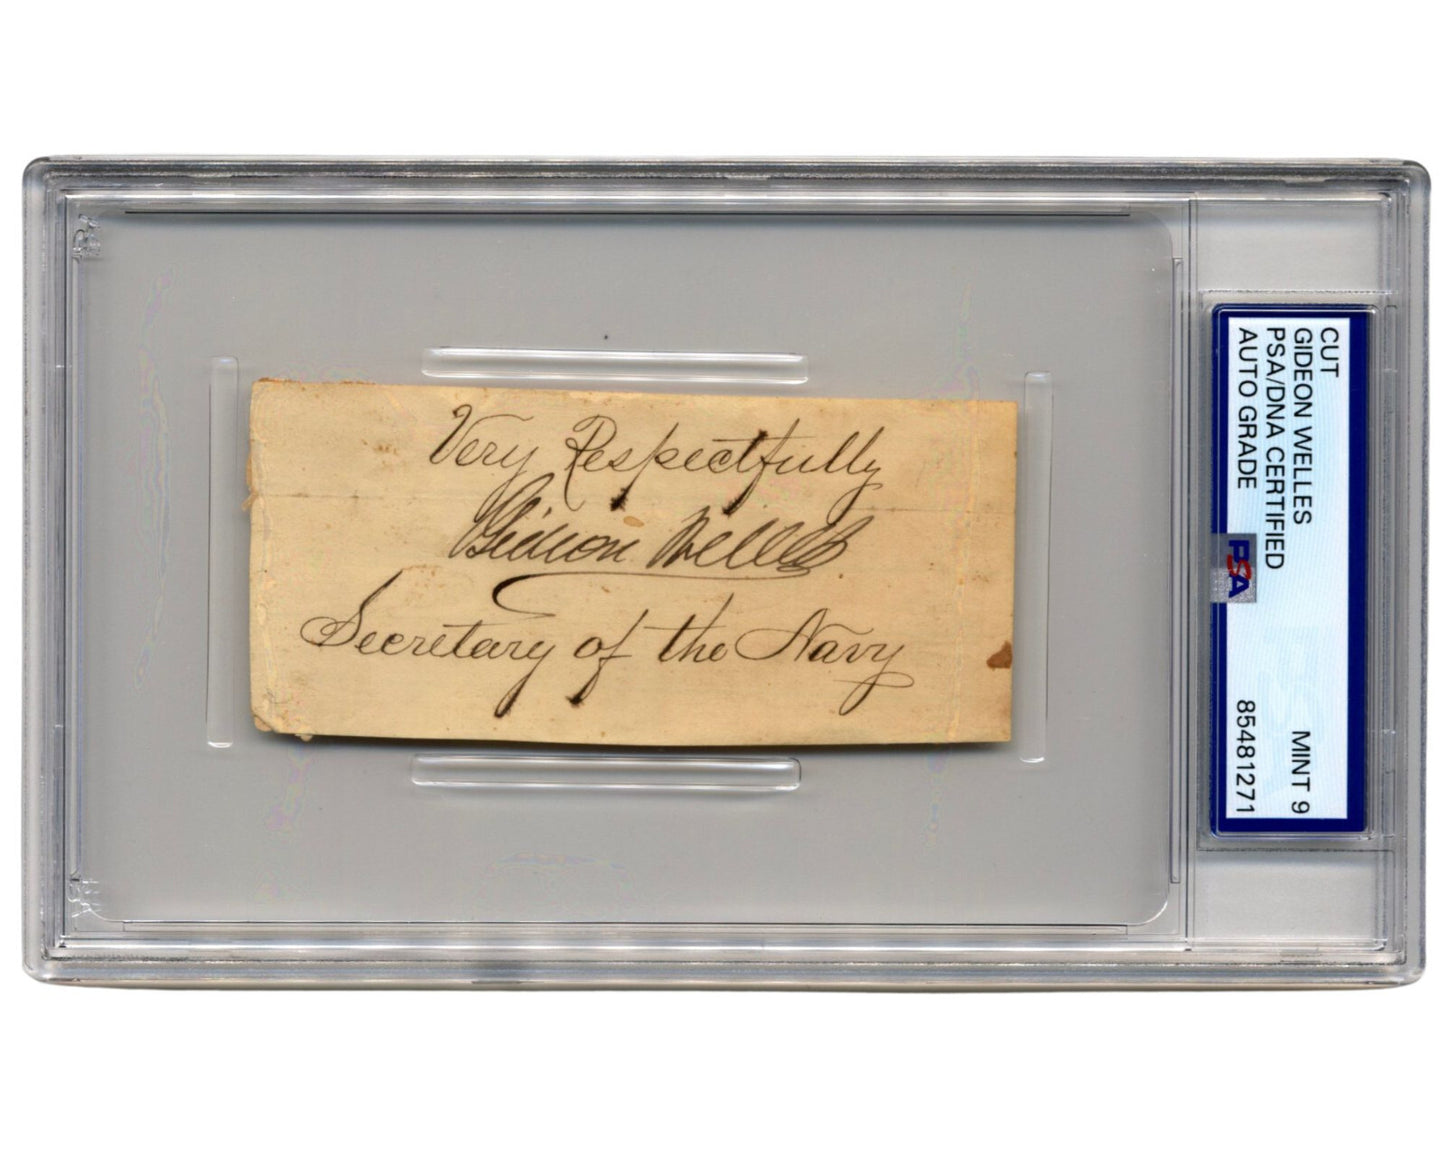 Very Respectfully
Gideon Welles
Secretary of the Navy
CUT
GIDEON WELLES
PSA/DNA CERTIFIED
AUTO GRADE
MINT 9
85481271
PSA